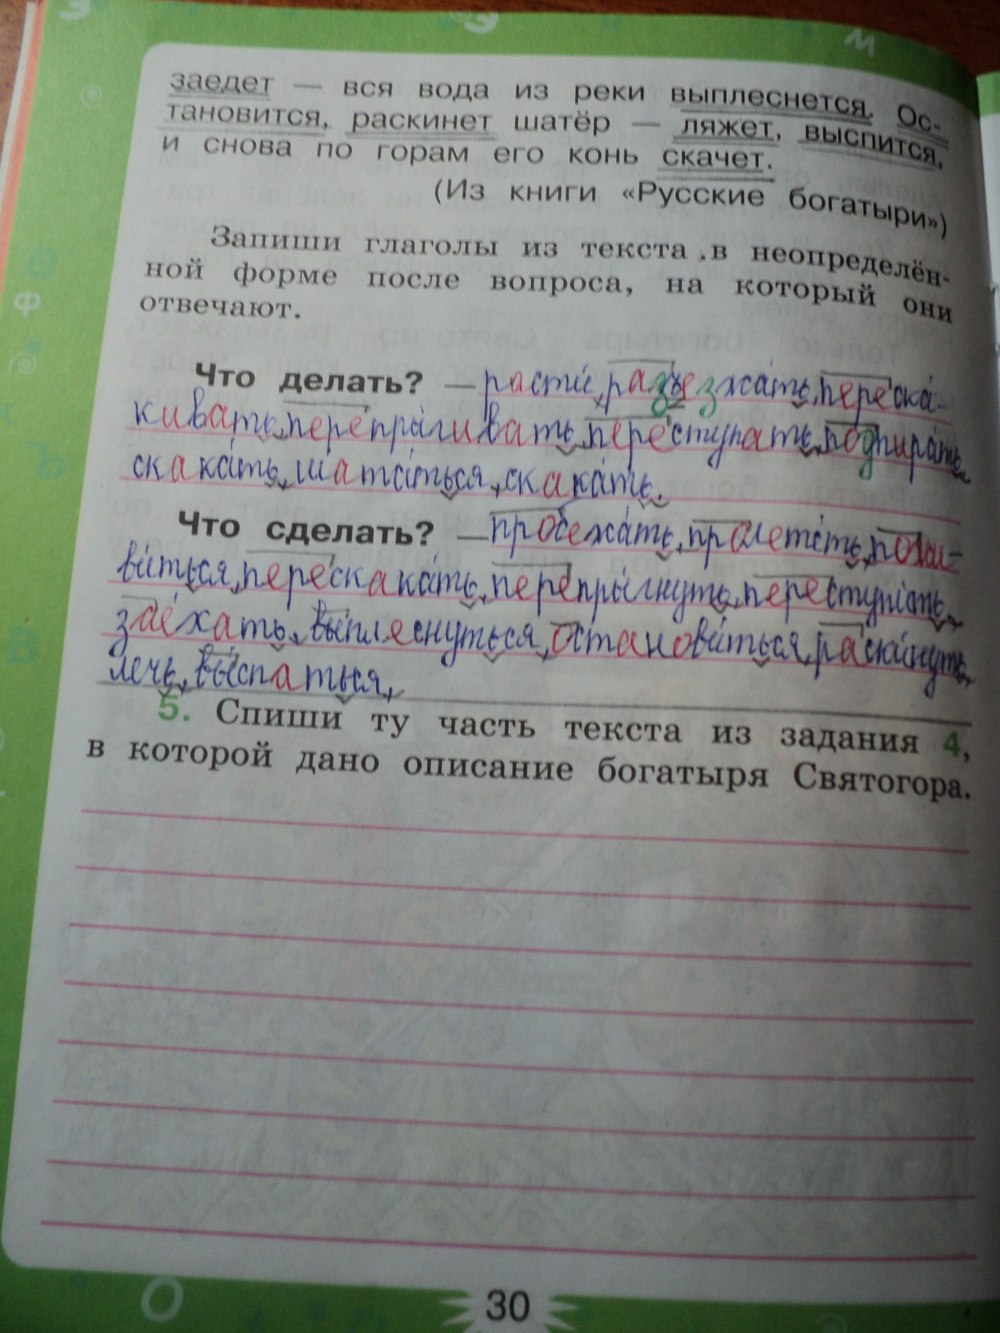 заедет — вся вода из реки выплеснется. Ос-
тановится, раскинет шатёр — ляжет, выспится,
и снова по горам его конь скачет.
(Из книги «Русские богатыри»)
Запиши глаголы из текста в неопределён-
ной форме после вопроса, на который они
отвечают.
Что делать? — расти, разъезжать, переска-
кивать, перепрыгивать, переступать, подпирать,
скакать, шататься, скакать.
Что сделать? — пробежать, пролететь,
виться, перескакать, перепрыгнуть, переступить,
заехать, выплеснуться, остановиться, раскинуть,
лечь, выспаться,
5. Спиши ту часть текста из задания 4,
в которой дано описание богатыря Святогора.
30